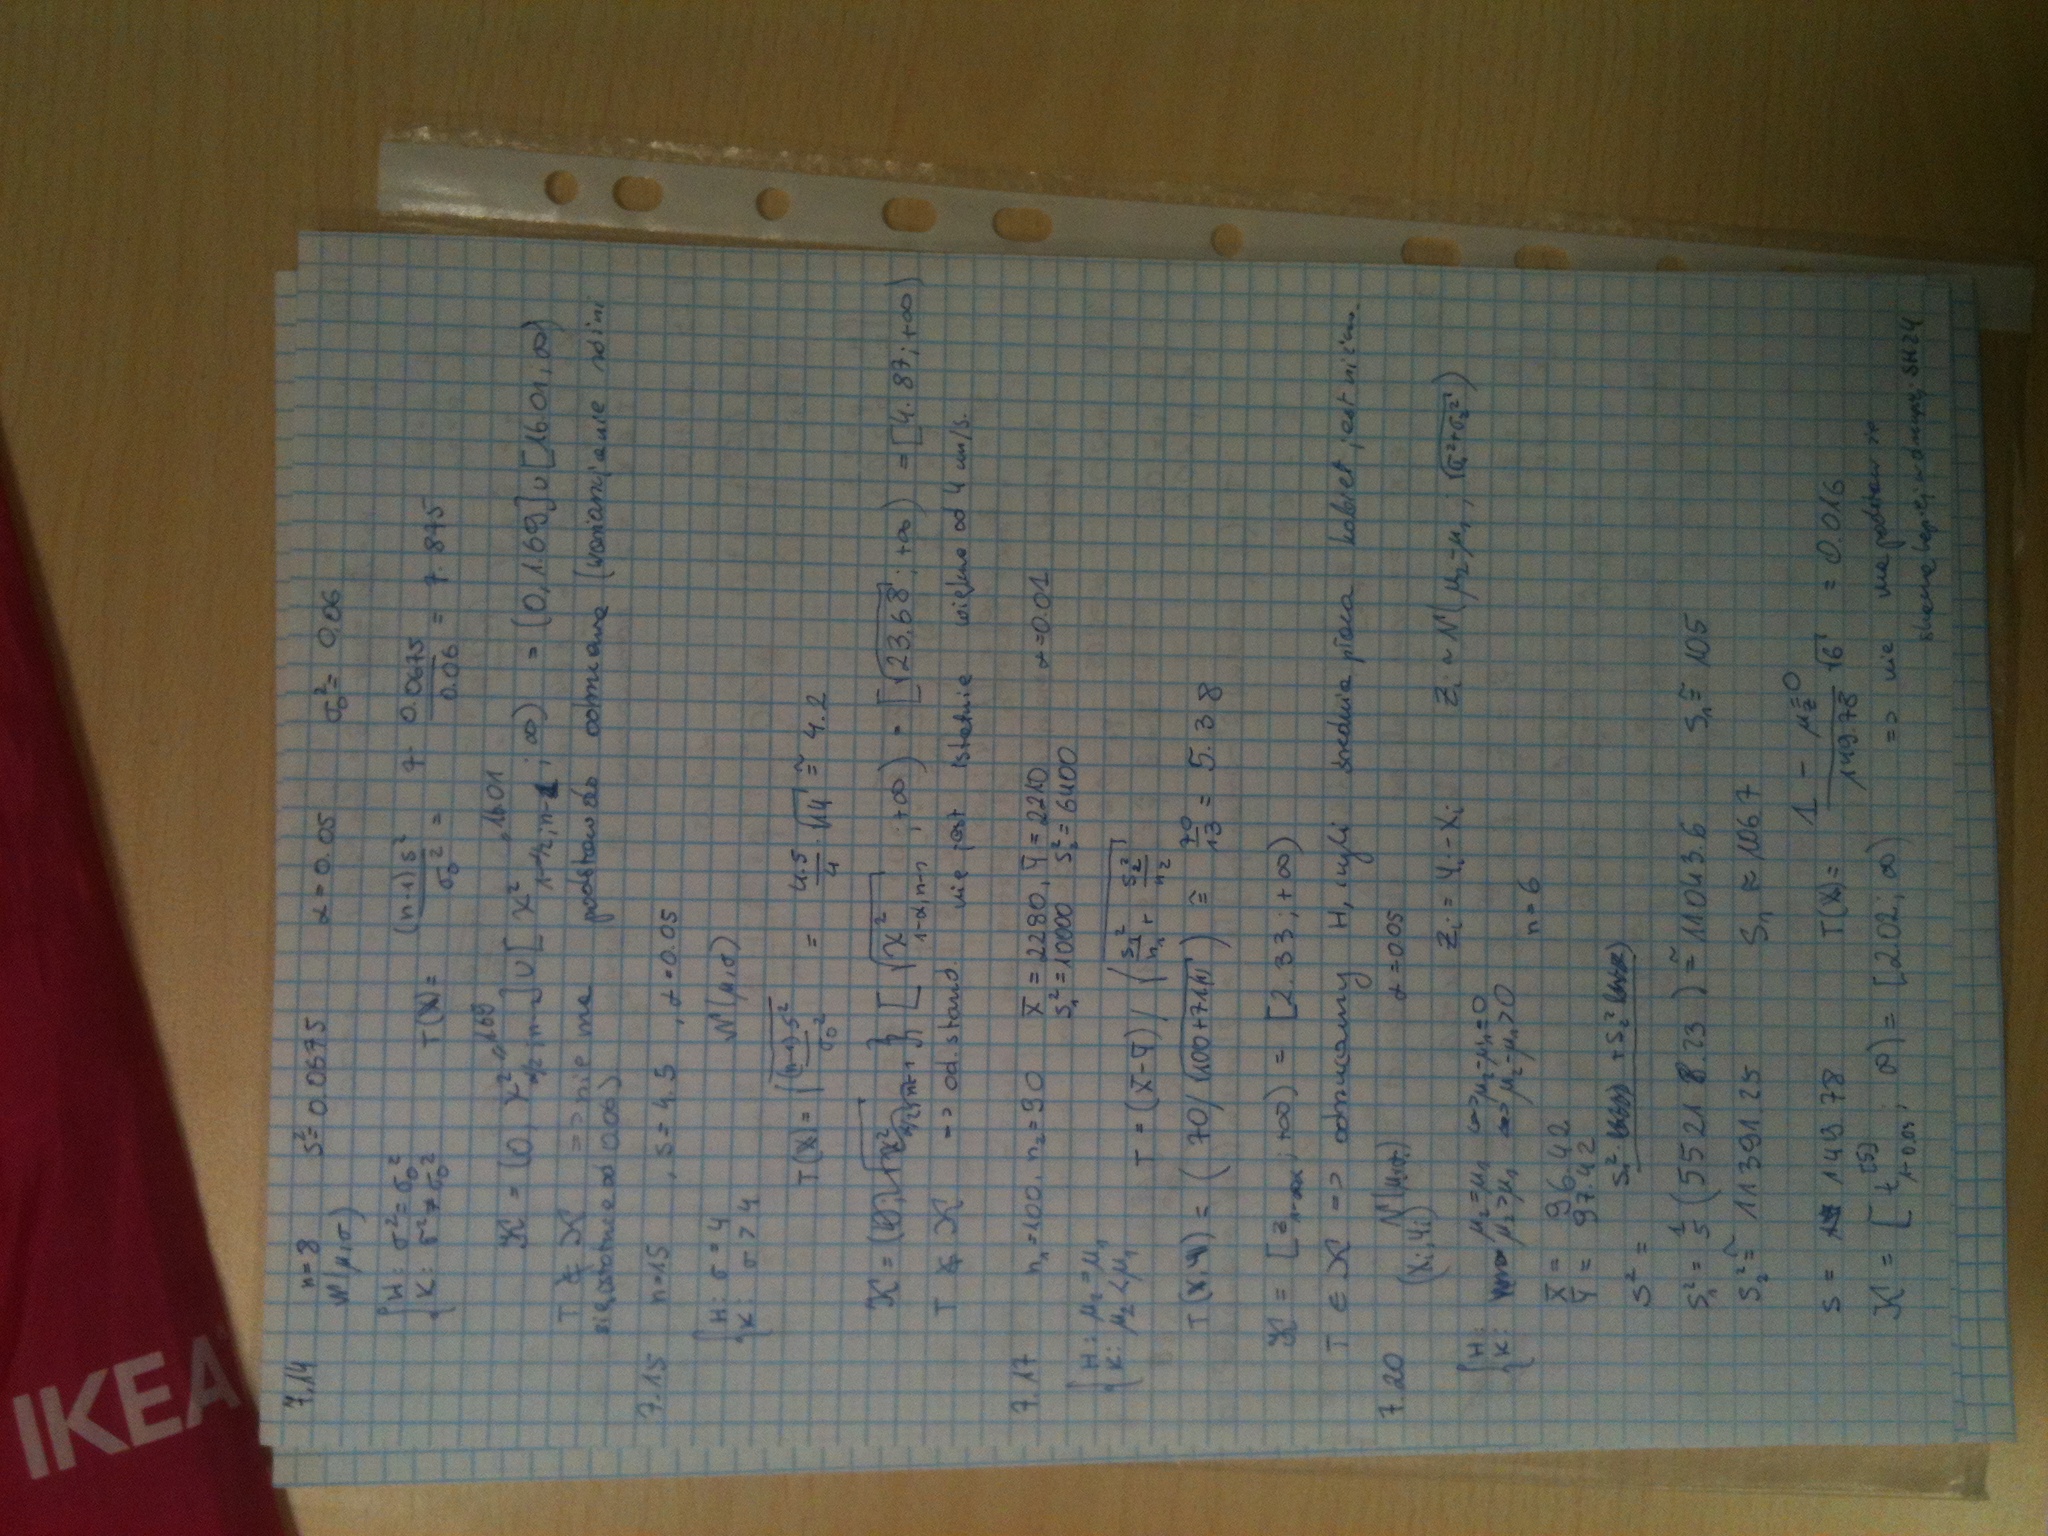 IKEA
7.14 n=8 s²=0.0675 α=0.05 σ₀²= 0.06
N(μ,σ)
H: σ²=σ₀²
K: σ²≠σ₀² T(X)= (n-1)s²/σ₀² = 7· 0.0675/0.06 = 7.875
𝒦 = (0, χ²α/2;n-1 =1.69] ∪ [χ²1-α/2;n-1 =16.01; ∞) = (0,1.69]∪[16.01;∞)
T ∉ 𝒦 => nie ma podstaw do odrzucenia (wariancja nie różni
się istotnie od 0.06)
7.15 n=15, s=4.5, α=0.05
H: σ=4 N(μ,σ)
K: σ>4
T(X)= √((n-1)s²/σ₀²) = 4.5/4 · √14 ≅ 4.2
𝒦 = [√χ²1-α,n-1; +∞) = [√23.68; +∞) = [4.87; +∞)
T ∉ 𝒦 => od. stand. nie jest istotnie większe od 4 m/s.
7.17 n₁=100, n₂=90 X̄=2280, Ȳ=2210 α=0.01
s₁²=10000 s₂²=6400
H: μ₂=μ₁
K: μ₂<μ₁
T = (X̄-Ȳ)/√(s₁²/n₁ + s₂²/n₂)
T(X,Y) = (70/√(100+71(1))) ≅ 70/13 = 5.38
𝒦 = [z1-α; +∞) = [2.33; +∞)
T ∈ 𝒦 => odrzucamy H, czyli średnia płaca kobiet jest niższa.
7.20 N(μᵢ,σᵢ) α=0.05
(Xᵢ,Yᵢ)
Zᵢ=Yᵢ-Xᵢ Zᵢ~N(μ₂-μ₁; √(σ₁²+σ₂²))
H: μ₂=μ₁ <=> μ₂-μ₁=0
K: μ₂>μ₁ <=> μ₂-μ₁>0
n=6
X̄ = 96.42
Ȳ = 97.42
s² =
s₁² = 1/5 (55218.23) ≅ 11043.6 s₁ ≅ 105
s₂² ≅ 11391.25 s₁ ≈ 106.7
s = 149.78 T(X)= (1 - μz=0)/149.78 √6 = 0.016
𝒦 = [t[5]1-0.05; ∞) = [2.02; ∞) => nie ma podstaw że
w SH24